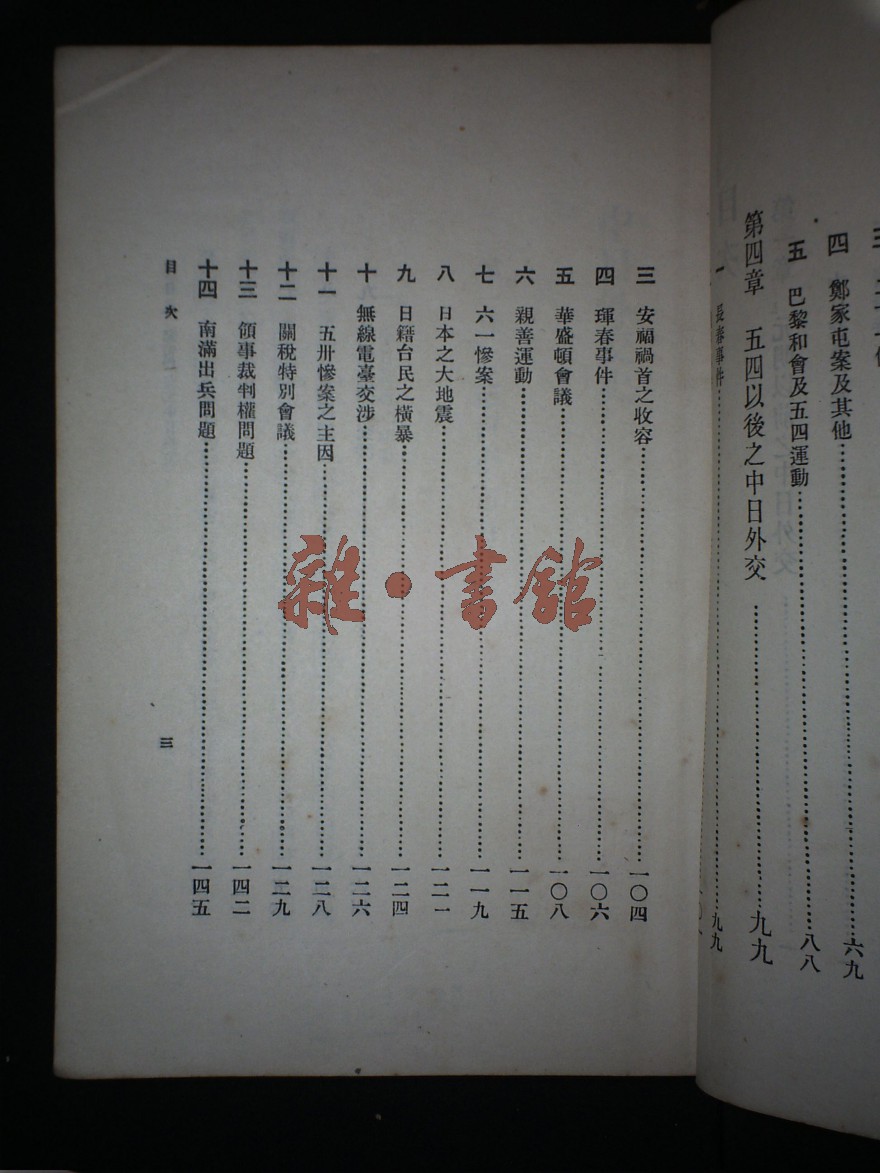 四 鄭家屯案及其他……六九
五 巴黎和會及五四運動……八八
第四章 五四以後之中日外交……九九
一 長春事件……九九
三 安福禍首之收容……一〇四
四 琿春事件……一〇六
五 華盛頓會議……一〇八
六 親善運動……一一五
七 六一慘案……一一九
八 日本之大地震……一二一
九 日籍台民之橫暴……一二四
十 無線電臺交涉……一二六
十一 五卅慘案之主因……一二八
十二 關稅特別會議……一二九
十三 領事裁判權問題……一四二
十四 南滿出兵問題……一四五
目次 三
雜·書館